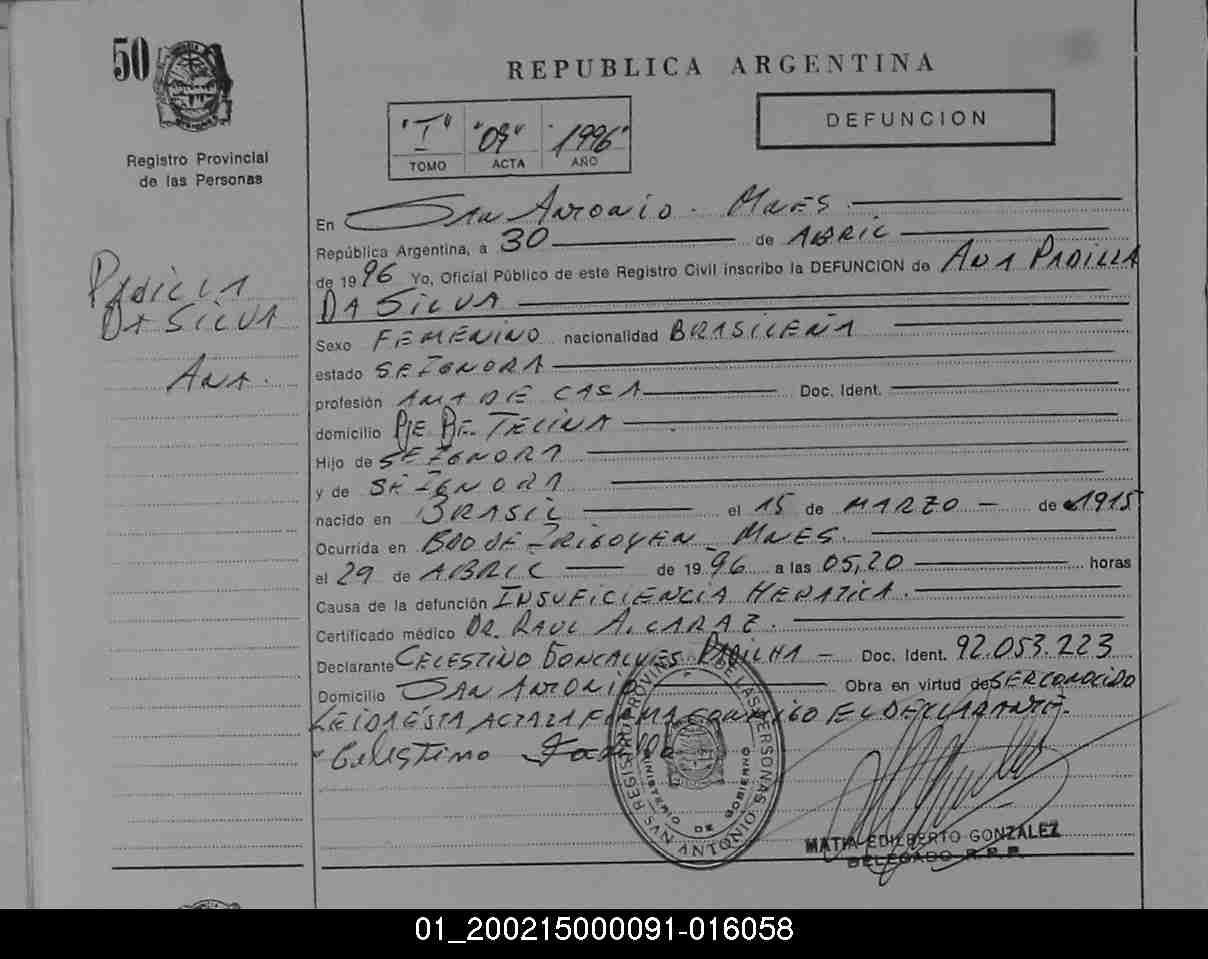 50
REPUBLICA ARGENTINA
"I" "09" "1996"
TOMO ACTA AÑO
DEFUNCION
Registro Provincial
de las Personas
PADILLA
DA SILVA
ANA.
En SAN ANTONIO. MNES.
República Argentina, a 30 de ABRIL
de 1996 Yo, Oficial Público de este Registro Civil inscribo la DEFUNCION de ANA PADILLA
DA SILVA
Sexo FEMENINO nacionalidad BRASILEÑA
estado SE IGNORA
profesión AMA DE CASA Doc. Ident.
domicilio PJE.
Hijo de SE IGNORA
y de SE IGNORA
nacido en BRASIL el 15 de MARZO de 1915
Ocurrida en BDO DE IRIGOYEN - MNES.
el 29 de ABRIL de 1996 a las 05,20 horas
Causa de la defunción INSUFICIENCIA HEPATICA.
Certificado médico DR. RAUL ALCARAZ.
Declarante CELESTINO GONCALVES PADILHA - Doc. Ident. 92.053.223
Domicilio SAN ANTONIO Obra en virtud de SER CONOCIDO
LEIDA ESTA ACTA LA FIRMA CONMIGO EL DECLARANTE-
Celestino Padilha
REGISTRO PROVINCIAL DE LAS PERSONAS
MINISTERIO DE GOBIERNO
SAN ANTONIO
MATIA EDILBERTO GONZALEZ
DELEGADO R.P.P.
01_200215000091-016058